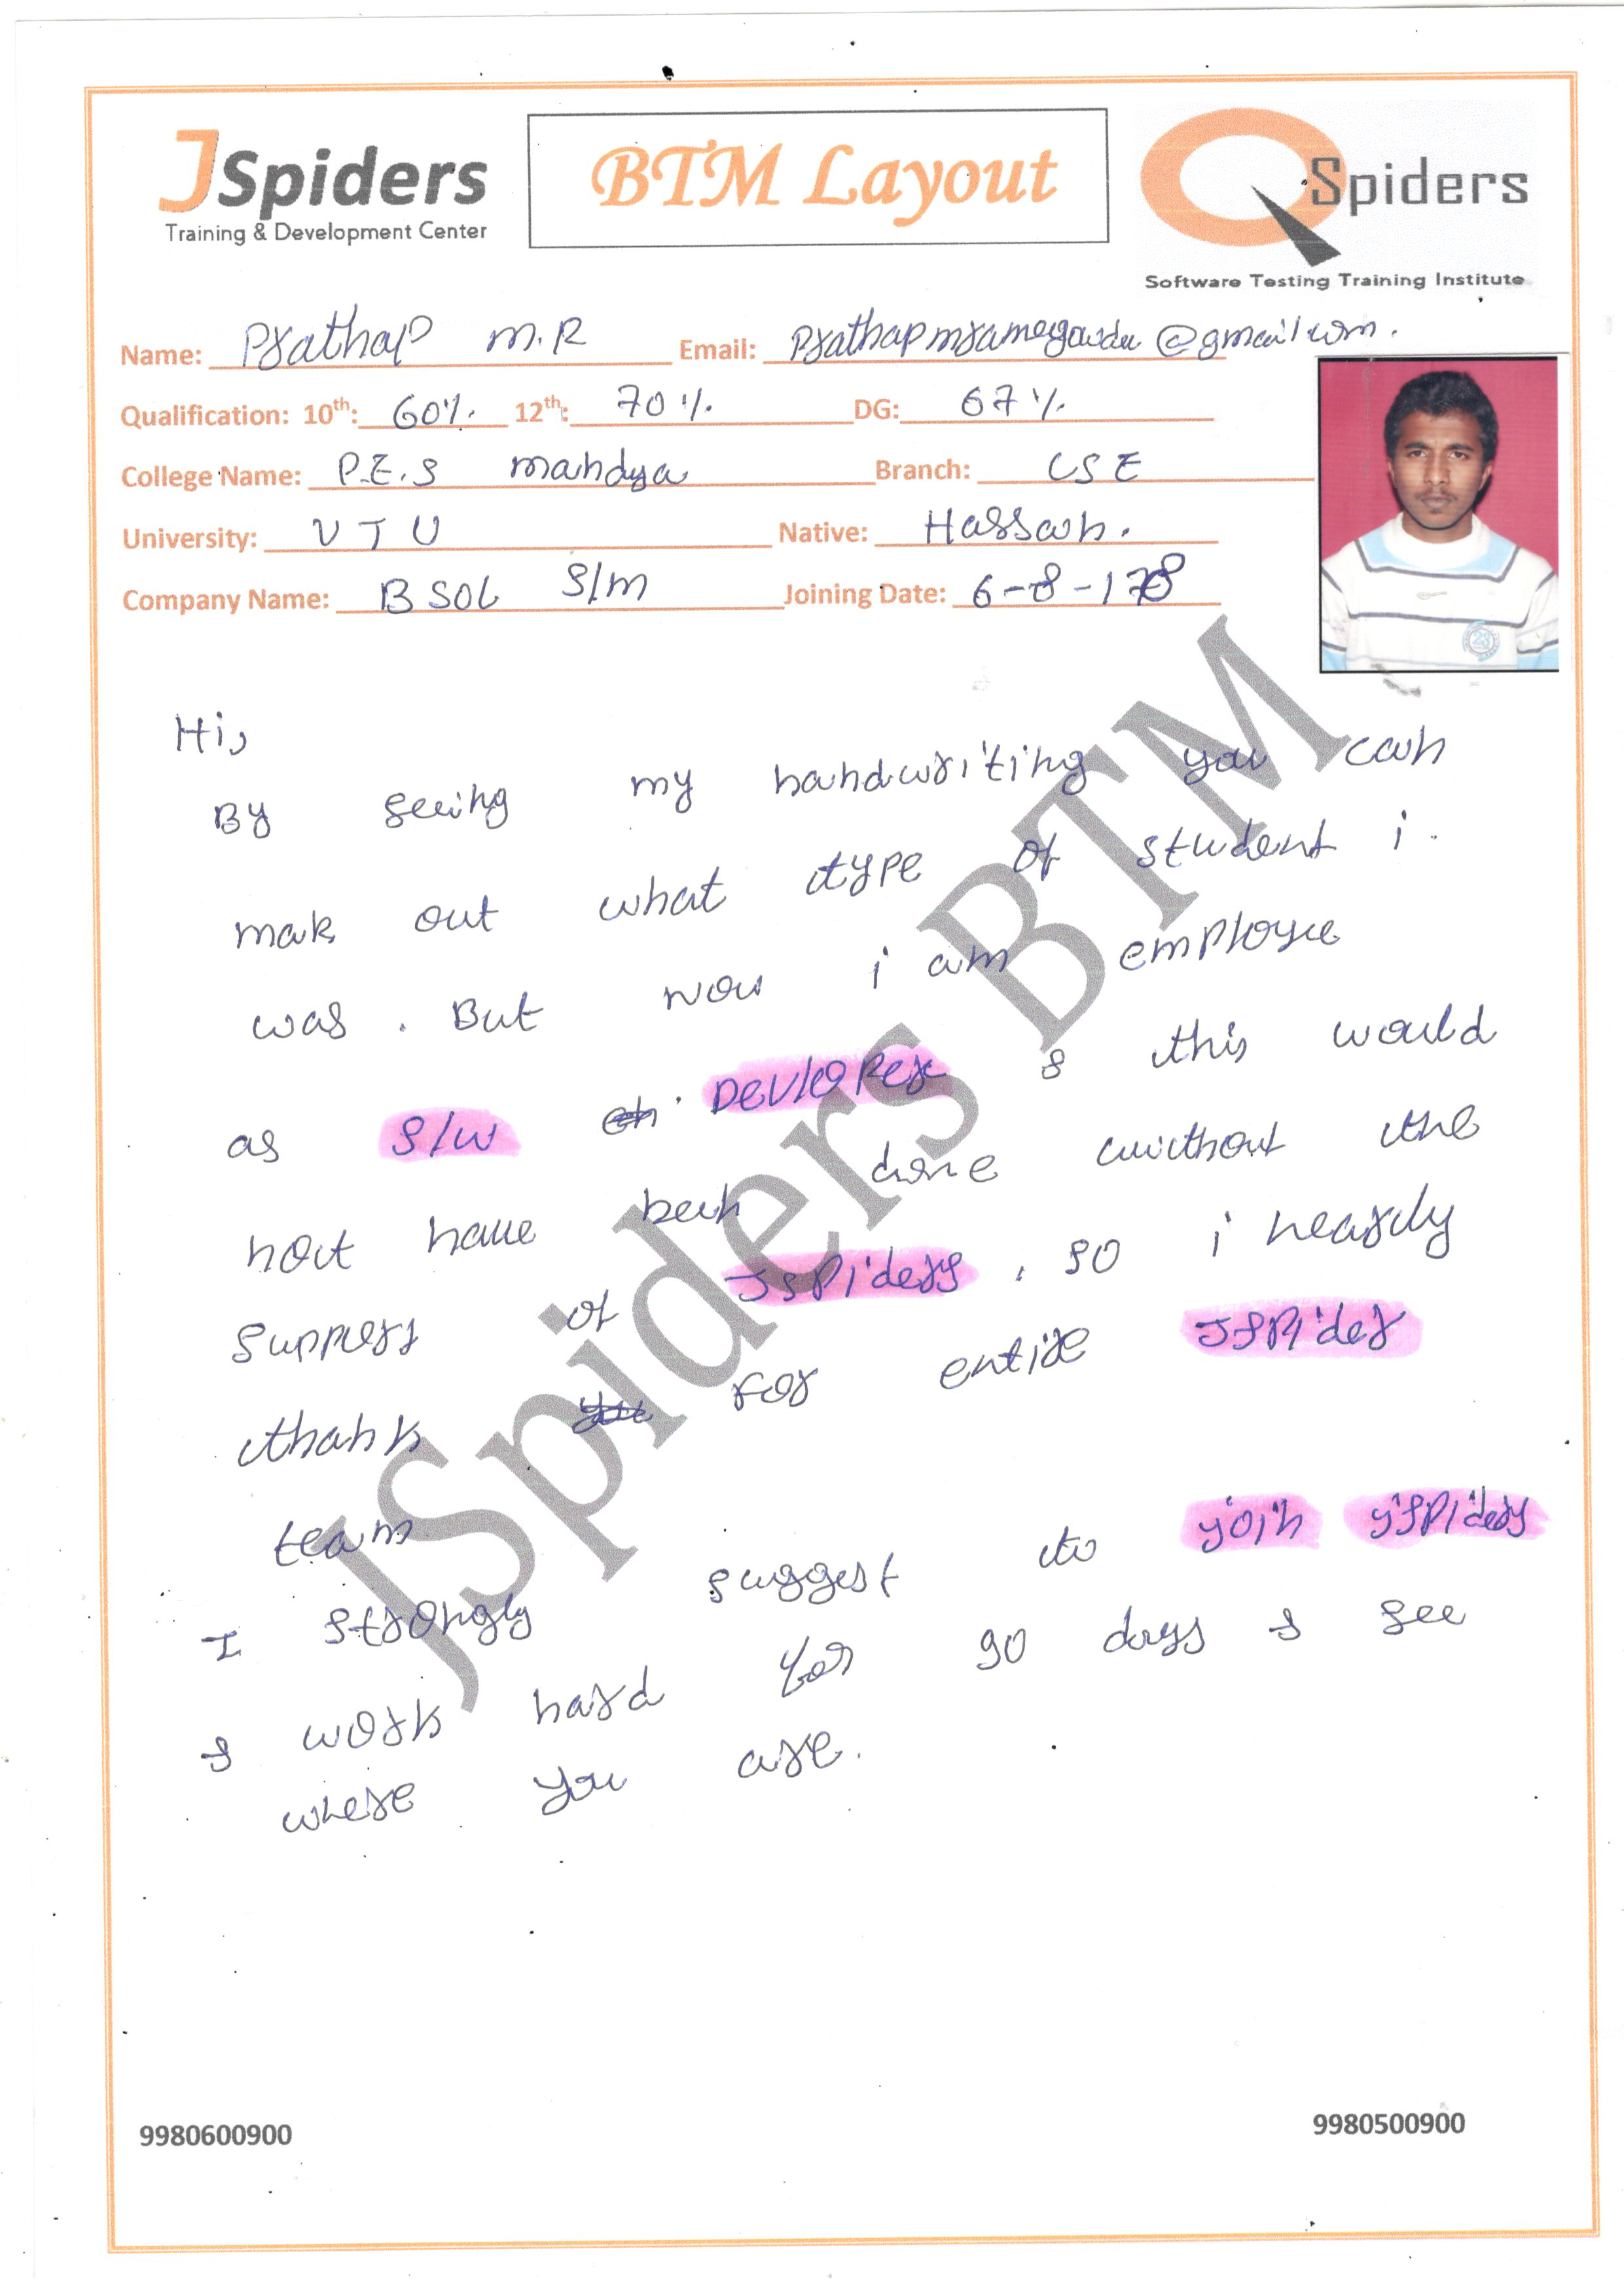 JSpiders
Training & Development Center
BTM Layout
QSpiders
Software Testing Training Institute
Name: Prathap M.R Email: Prathapmramegowda@gmail.com.
Qualification: 10th: 60% 12th: 70% DG: 67%
College Name: P.E.S Mandya Branch: CSE
University: VTU Native: Hassan.
Company Name: B SOL S/M Joining Date: 6-8-1
23
Hi,
By seeing my handwriting you can
mak out what type of student i
was. But now i am employee
as S/W Devloper & this would
not have been done without the
of JSpiders. so i heardly
thank for entire JSpider
team
I strongly suggest to join JSpiders
& work hard for 90 days & see
where you are.
JSpiders BTM
9980600900
9980500900